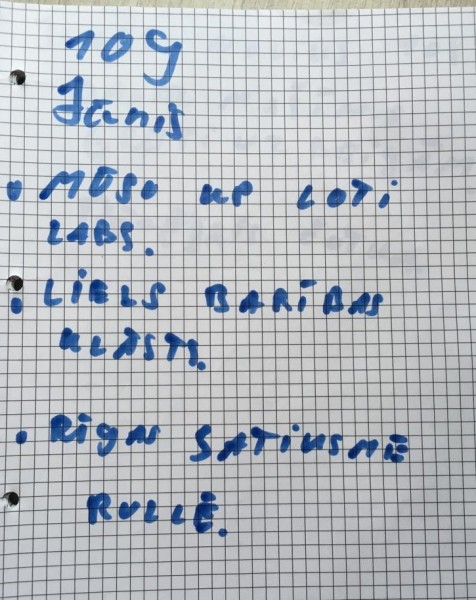 10g
Janis
• MŪSU UP LOTi
LABS.
• LiELS BARĪBAS
KLĀSTS.
• RĪgAS SATIKSME
RULLĒ.